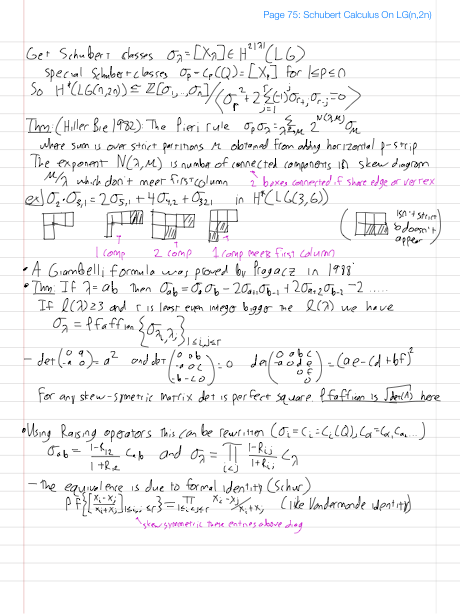 Page 75: Schubert Calculus On LG(n,2n)
Get Schubert classes σ_λ=[X_λ]∈H^{2|λ|}(LG)
special Schubert classes σ_p=C_p(Q)=[X_p] for 1≤p≤n
So H*(LG(n,2n))≅Z[σ_1,...,σ_n]/(σ_r^2+2Σ_{j=1}(-1)^jσ_{r+j}σ_{r-j}=0)
Thm: (Hiller Boe 1982): The Pieri rule σ_pσ_λ=Σ 2^{N(λ,μ)}σ_μ
where sum is over strict partitions μ obtained from adding horizontal p-strip
The exponent N(λ,μ) is number of connected components in skew diagram
μ/λ which don't meet first column 2 boxes connected if share edge or vertex
ex) σ_2·σ_{3,1}=2σ_{5,1}+4σ_{4,2}+σ_{321} in H*(LG(3,6))
(isn't strict so doesn't appear)
1 comp 2 comp 1 comp meets first column
• A Giambelli formula was proved by Pragacz in 1988
• Thm: If λ=ab then σ_{ab}=σ_aσ_b-2σ_{a+1}σ_{b-1}+2σ_{a+2}σ_{b-2}-2.....
If l(λ)≥3 and r is least even integer bigger the l(λ) we have
σ_λ=Pfaffian{σ_{λ_iλ_j}}_{1≤i<j≤r}
- det(0 a -a 0)=a^2 and det(0 a b -a 0 c -b -c 0)=0 det(0 a b c 0 d e 0 f 0)=(ae-cd+bf)^2
For any skew-symetric matrix det is perfect square Pfaffian is √det(A) here
• Using Raising operators this can be rewritten (σ_i=C_i=C_i(Q), C_α=C_{α_1}C_{α_2}...)
σ_{ab}=(1-R_{12})/(1+R_{12}) C_{ab} and σ_λ=∏_{i<j} (1-R_{ij})/(1+R_{ij}) C_λ
- The equivalence is due to formal identity (Schur)
Pf{[(x_i-x_j)/(x_i+x_j)]_{1≤i,j≤r}}=∏_{1≤i<j≤r} (x_i-x_j)/(x_i+x_j) (like Vandermonde identity)
skew symmetric these entries above diag